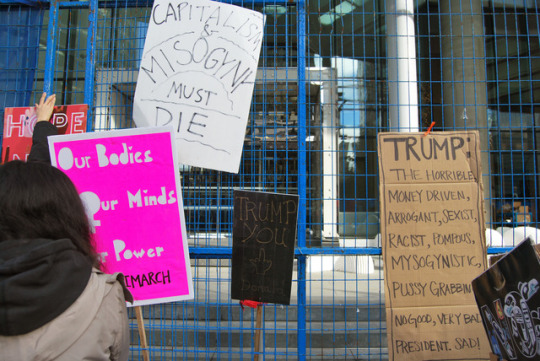 CAPITALISM
&
MISOGYNY
MUST
DIE
HOPE
OUR BODIES
OUR MINDS
POWER
IMARCH
TRUMP
YOU
TRUMP:
THE HORRIBLE
MONEY DRIVEN,
ARROGANT, SEXIST,
RACIST, POMPOUS,
MYSOGYNISTIC,
PUSSY GRABBIN
NO GOOD, VERY BAD
PRESIDENT. SAD!